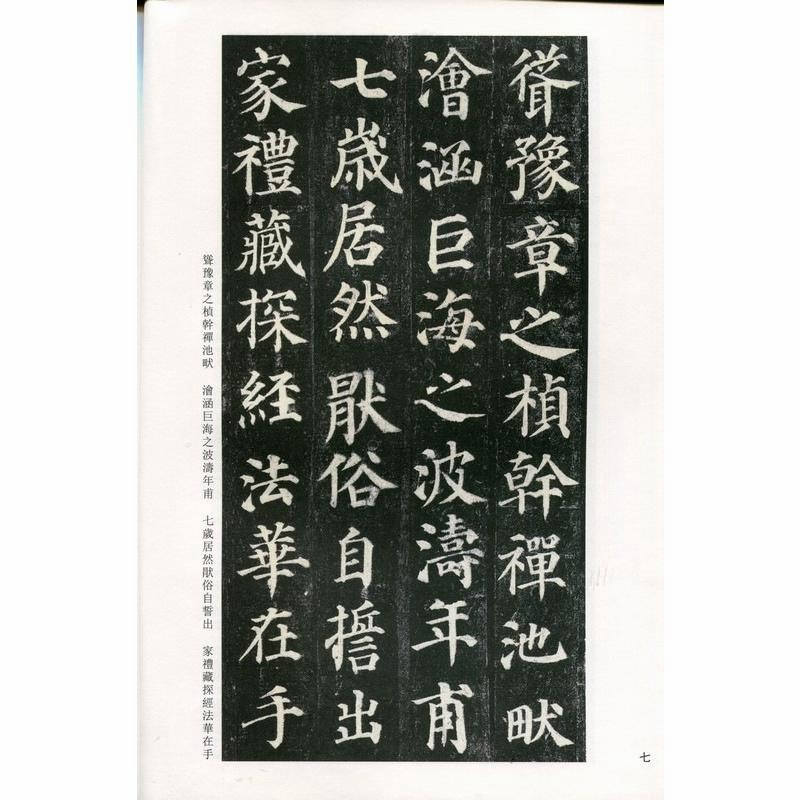 聳豫章之楨幹禪池畎
澮涵巨海之波濤年甫
七歲居然猒俗自誓出
家禮藏探經法華在手
聳豫章之楨幹禪池畎 澮涵巨海之波濤年甫 七歲居然猒俗自誓出 家禮藏探經法華在手
七